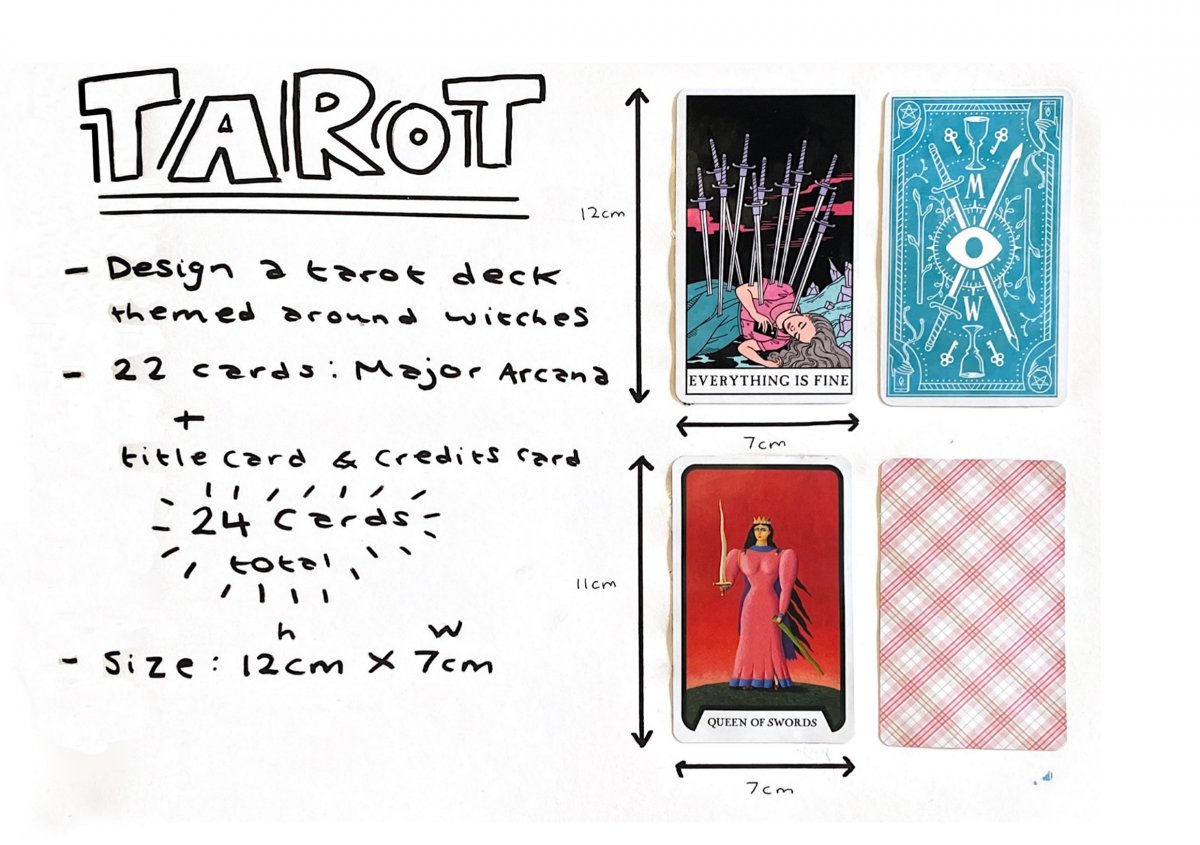 TAROT
- Design a tarot deck
themed around witches
- 22 cards: Major Arcana
+
title card & credits card
24 cards
total
h W
- Size: 12cm X 7cm
12cm
EVERYTHING IS FINE
M
W
7cm
11cm
QUEEN OF SWORDS
7cm